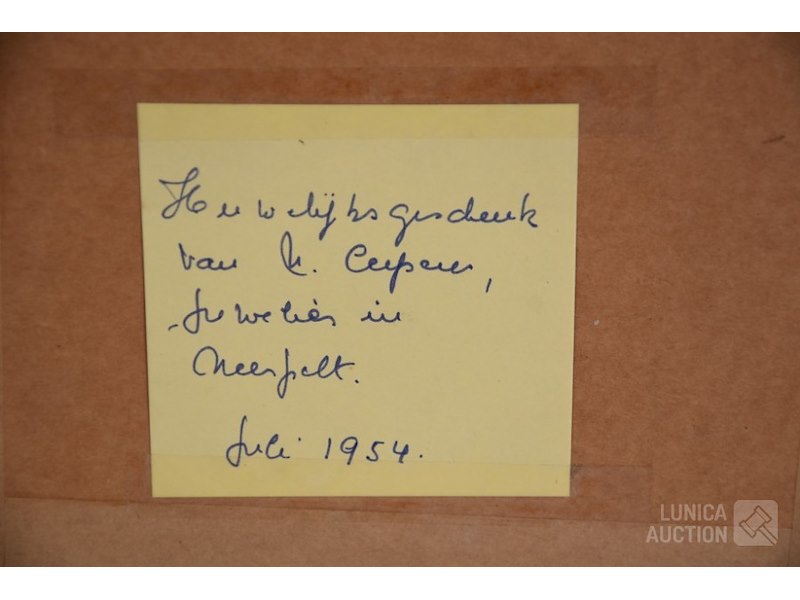 Huwelijksgeschenk
van M.
Juwelier in
Neerpelt.
Juli 1954.
LUNICA
AUCTION